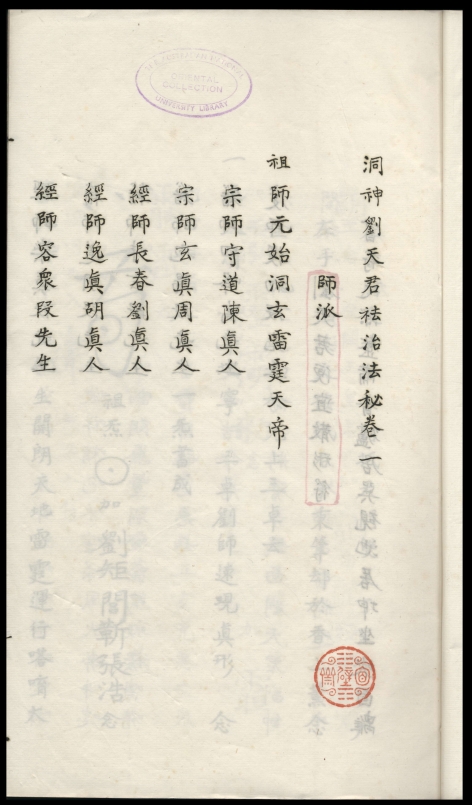 洞神劉天君祛治法秘卷一
師派
祖師元始洞玄雷霆天帝
宗師守道陳真人
宗師玄真周真人
經師長春劉真人
經師逸真胡真人
經師容衆段先生
ORIENTAL
COLLECTION
UNIVERSITY LIBRARY